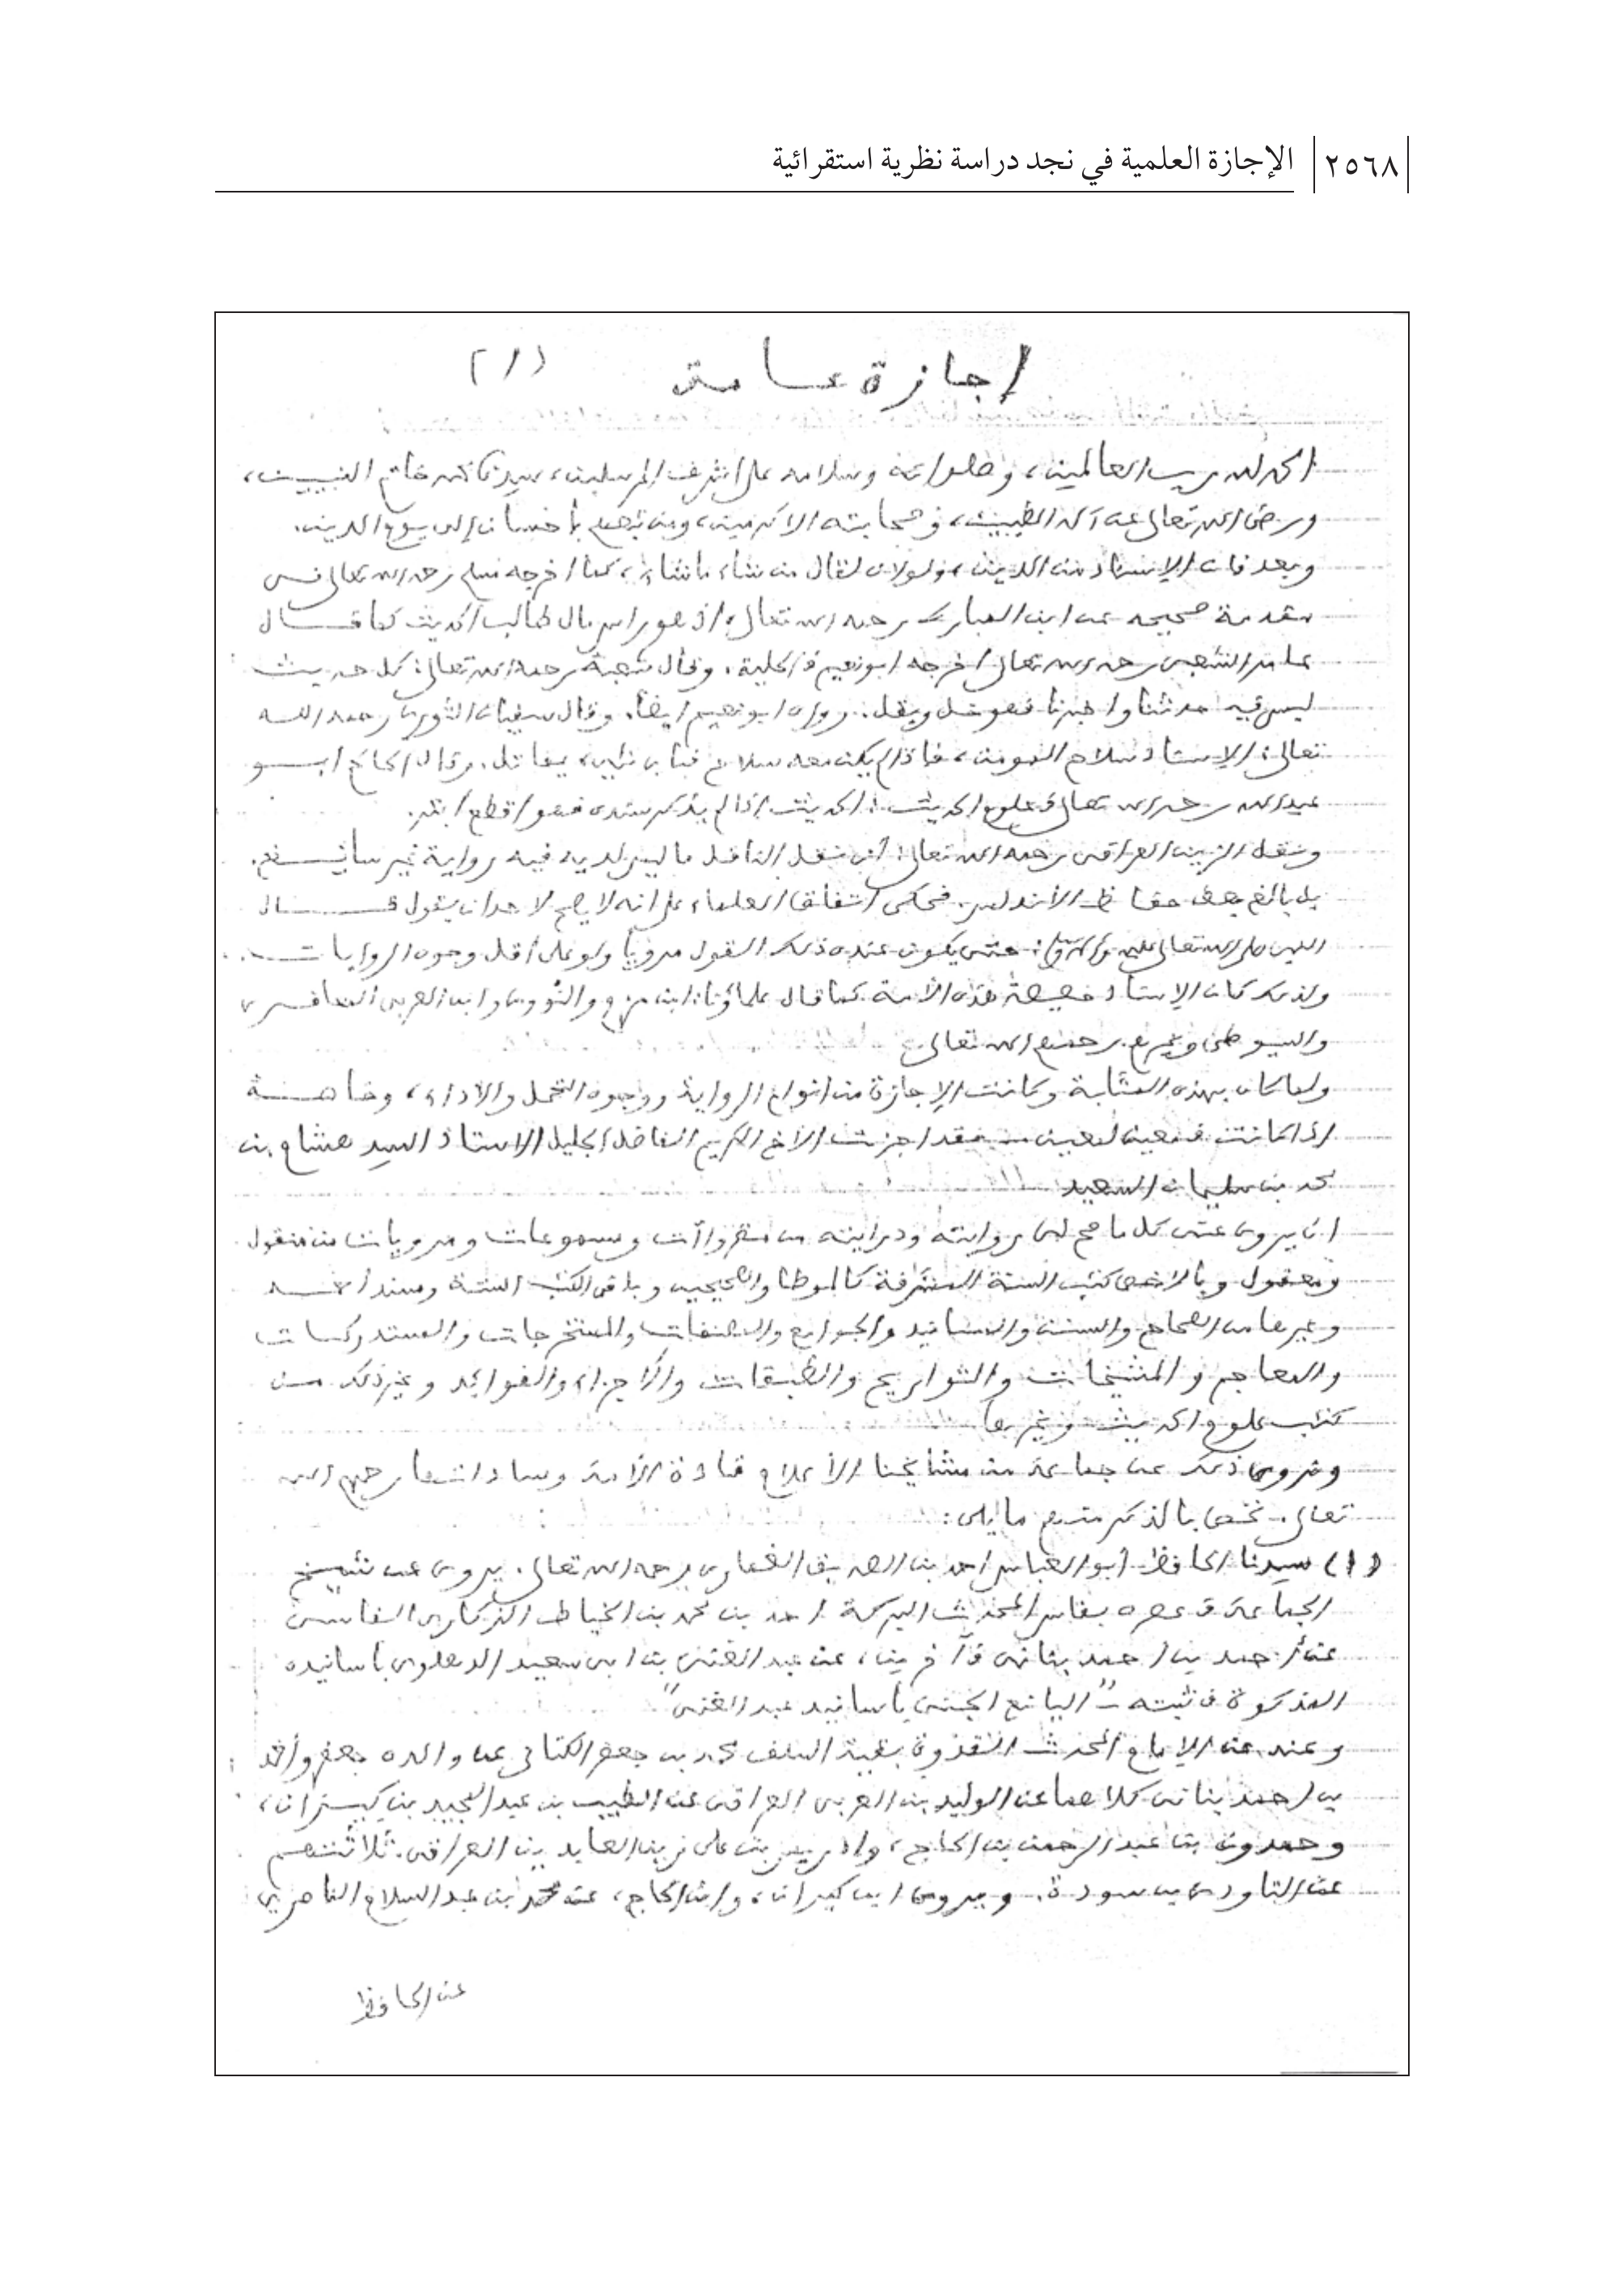 ٢٥٦٨ الإجازة العلمية في نجد دراسة نظرية استقرائية
إجازة عامة (١)
الحمد لله رب العالمين، وصلواته وسلامه على أشرف المرسلين، سيدنا محمد خاتم النبيين،
ورضي الله تعالى عن آله الطيبين، وصحابته الأكرمين، ومن تبعهم بإحسان إلى يوم الدين.
وبعد فإن الإسناد من الدين، ولولاه لقال من شاء ما شاء، كما أخرجه مسلم رحمه الله تعالى في
مقدمة صحيحه عن ابن المبارك رحمه الله تعالى، إذ هو رأس مال طالب الحديث كما قال
عامر الشعبي رحمه الله تعالى أخرجه أبو نعيم في الحلية. وقال شعبة رحمه الله تعالى: كل حديث
ليس فيه حدثنا وأخبرنا فهو خل وبقل. رواه أبو نعيم أيضا. وقال سفيان الثوري رحمه الله
تعالى: الإسناد سلاح المومن، فإذا لم يكن معه سلاح فبأي شيء يقاتل. وقال الحاكم أبو
عبد الله رحمه الله تعالى في علوم الحديث: الحديث إذا لم يذكر سنده فهو أقطع أبتر.
ونقل الزين العراقي رحمه الله تعالى: أن نقل الناقل ما ليس لديه فيه رواية غير سائغ.
بل بالغ بعض حفاظ الأندلس. فحكى اتفاق العلماء على أنه لا يصح لأحد أن يقول قال
النبي صلى الله تعالى عليه وآله وسلم: حتى يكون عنده ذلك القول مرويا ولو على أقل وجوه الروايات.
ولذلك كان الإسناد خصيصة هذه الأمة كما قال علماؤنا: ابن حزم والنووي وابن العربي المعافري
والسيوطي وغيرهم رحمهم الله تعالى
ولما كان بهذه المثابة وكانت الإجازة من أنواع الرواية ووجوه التحمل والأداء، وخاصة
إذا كانت في معين لمعين فقد أجزت الأخ الكريم الفاضل الجليل الاستاذ السيد هشام بن
محمد بن سليمان السعيد
أن يروي عني كل ما صح لي روايته ودرايته من مقروآت ومسموعات ومرويات من منقول
ومعقول وبالأخص كتب السنة المشرفة كالموطا والصحيحين وباقي الكتب الستة ومسند أحمد
وغيرها من الصحاح والسنن والمسانيد والجوامع والمصنفات والمستخرجات والمستدركات
والمعاجم والمشيخات والتواريخ والطبقات والأجزاء والفوائد وغير ذلك من
كتب علوم الحديث وغيرها
ونروي ذلك عن جماعة من مشايخنا الأعلام قادة الأمة وساداتها رحمهم الله
تعالى. نخص بالذكر منهم ما يلي:
(١) سيدنا الحافظ أبو العباس أحمد بن الصديق الغماري رحمه الله تعالى. يروي عن شيخ
الجماعة في عصره بفاس المحدث البركة أحمد بن محمد بن الخياط الزكاري الفاسي
عن أحمد بن أحمد بناني في آخرين، عن عبد الغني بن أبي سعيد الدهلوي بأسانيده
المذكورة في ثبته "اليانع الجني بأسانيد عبد الغني"
وعنه عن الإمام المحدث القدوة بقية السلف محمد بن جعفر الكتاني عن والده جعفر وأحمد
بن أحمد بناني كلاهما عن الوليد بن العربي العراقي عن الطيب بن عبد المجيد بن كيران،
وحمدون بن عبد الرحمن بن الحاج، وإدريس بن علي زين العابدين العراقي. ثلاثتهم
عن التاودي بن سودة. ويروي ابن كيران، وابن الحاج، عن محمد بن عبد السلام الناصري
عن الحافظ